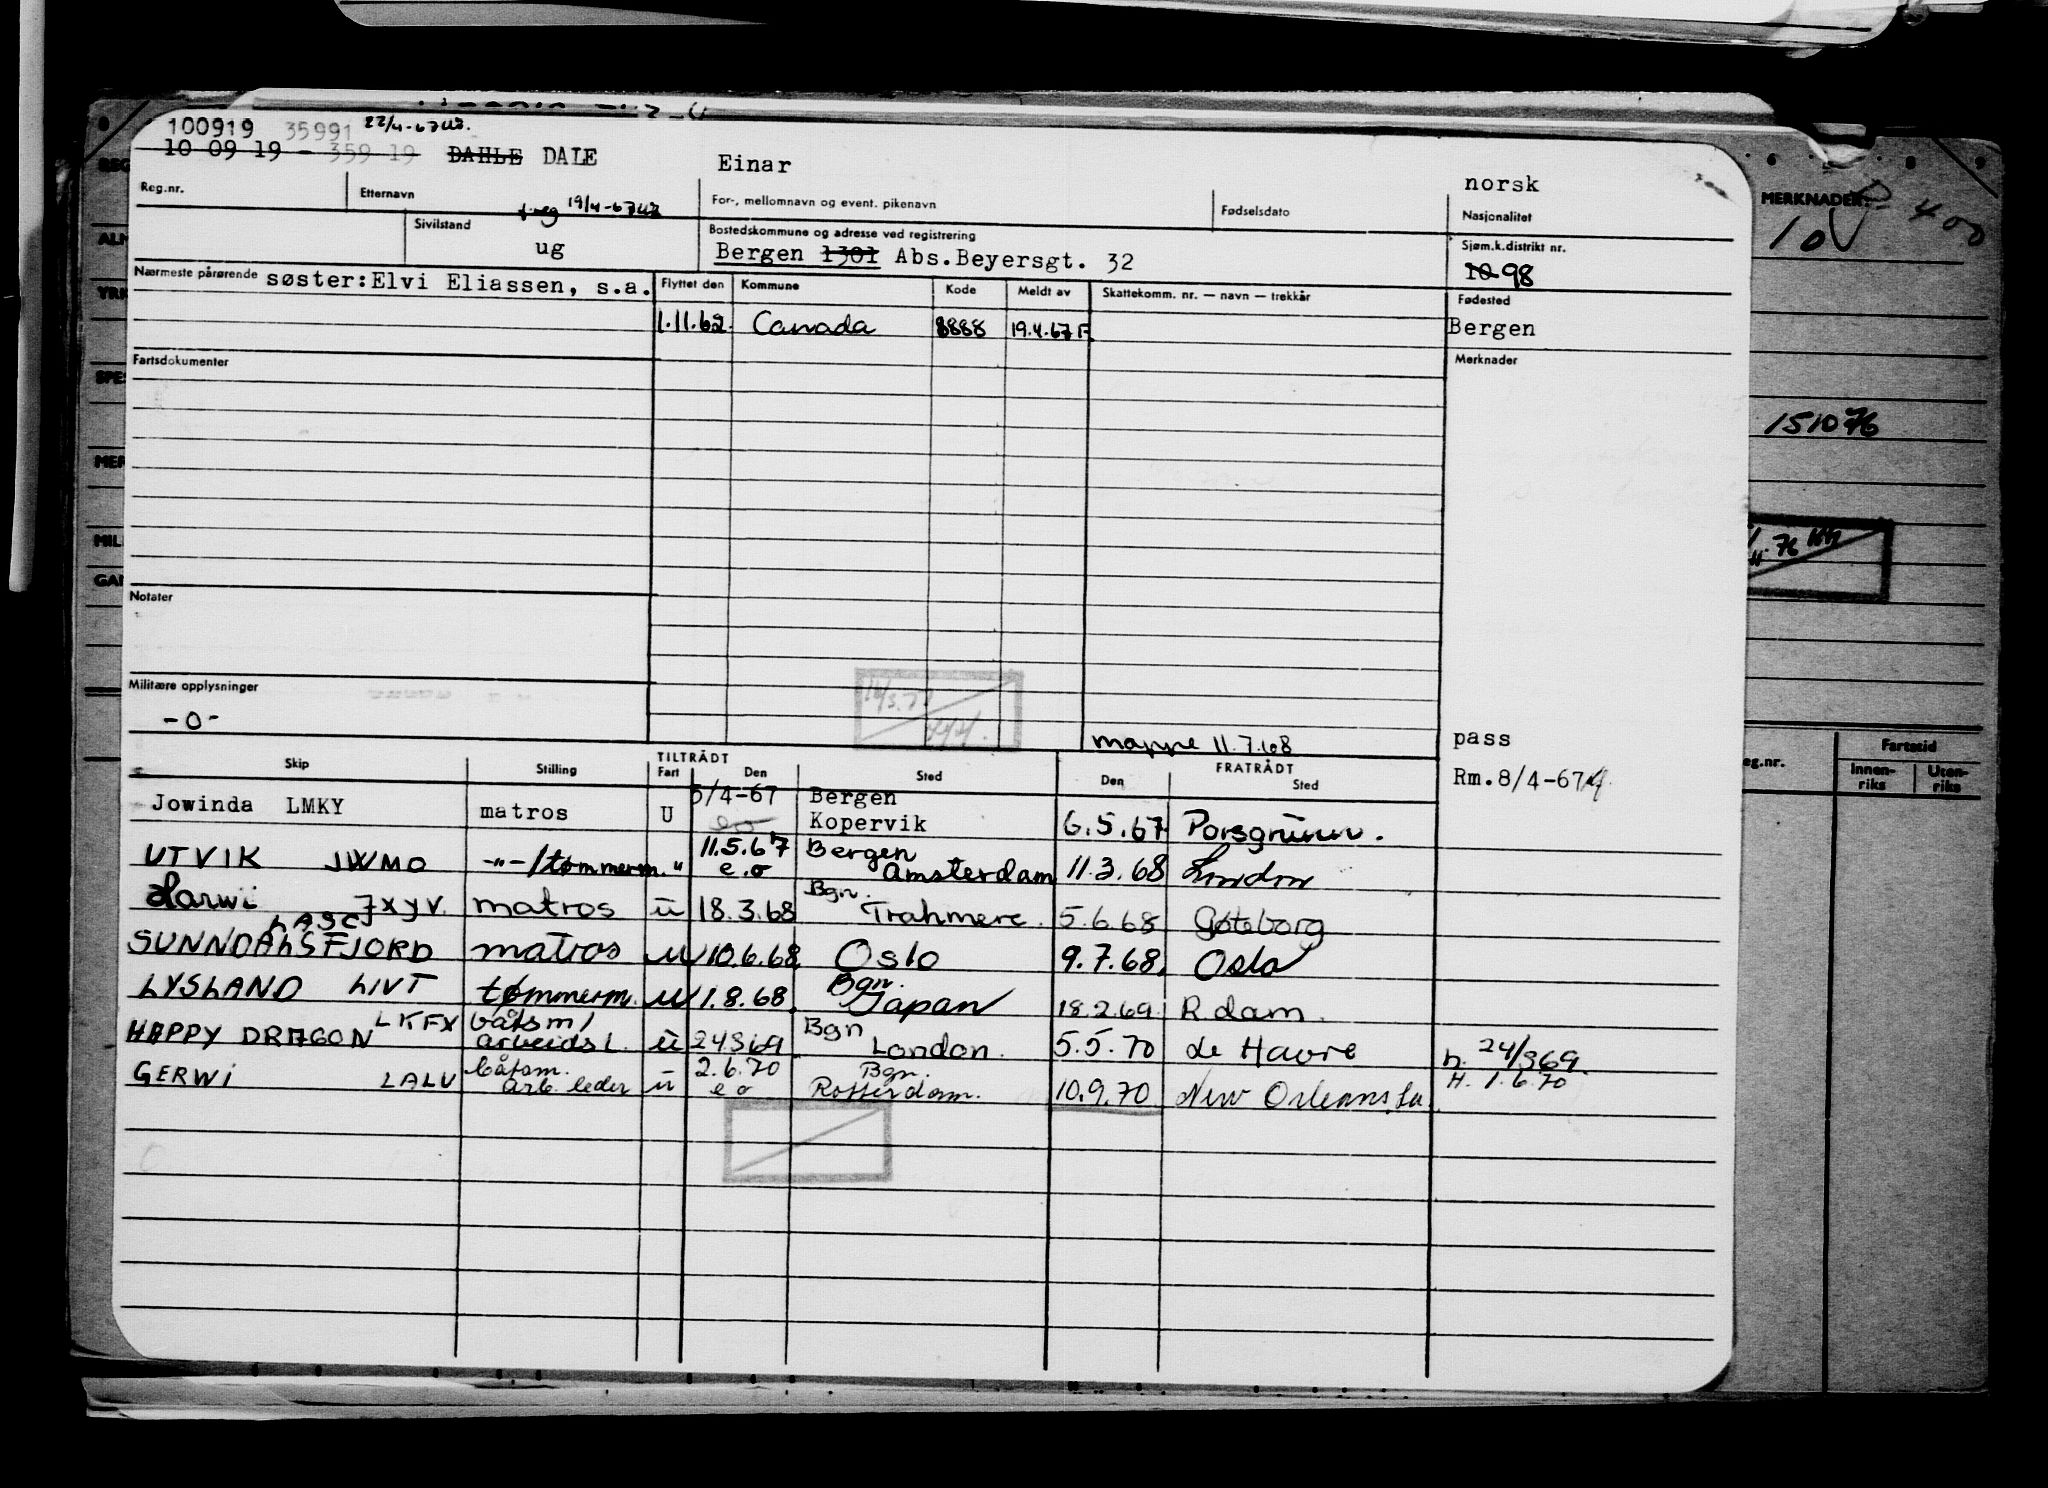 100919 35991 22/4-67
10 09 19 - 359 19 DAHLE DALE Einar norsk
Reg.nr. Etternavn For-, mellomnavn og event. pikenavn Fødselsdato Nasjonalitet
19/4-67
Sivilstand Bostedskommune og adresse ved registrering Sjøm.k.distrikt nr.
ug Bergen 1301 Abs.Beyersgt. 32 10 98
Nærmeste pårørende søster:Elvi Eliassen, s.a. Flyttet den Kommune Kode Meldt av Skattekomm. nr. — navn — trekkår Fødested
1.11.62. Canada 8888 19.4.67 F Bergen
Fartsdokumenter Merknader
Notater
Militære opplysninger
-0-
mappe 11.7.68 pass
Skip Stilling TILTRÅDT Fart Den Sted FRATRÅDT Den Sted Rm.8/4-67
Jowinda LMKY matros U 5/4-67 Bergen Kopervik 6.5.67 Porsgrunn.
UTVIK JWMO -"-/tømmerm. " 11.5.67 e.o Bergen Amsterdam 11.3.68 London
Harwi JXYV. matros u 18.3.68 Bgn. Trahmere. 5.6.68 Gøteborg
LASC
SUNNDALSFJORD matros u 10.6.68. Oslo 9.7.68. Oslo
LYSLAND LIVT tømmerm. u 1.8.68. Bgn. Japan 18.2.69. R.dam.
HAPPY DRAGON LKFX båtsm/ arbeidsl. u 24369 Bgn London. 5.5.70 Le Havre h. 24/369.
GERWI LALU båtsm. arb. leder u 2.6.70 e o Bgn. Rotterdam. 10.9.70 New Orleans, La. H. 1.6.70
MERKNADER:
10
400
151076
76
eg.nr. Fartstid
Innen-riks Uten-riks